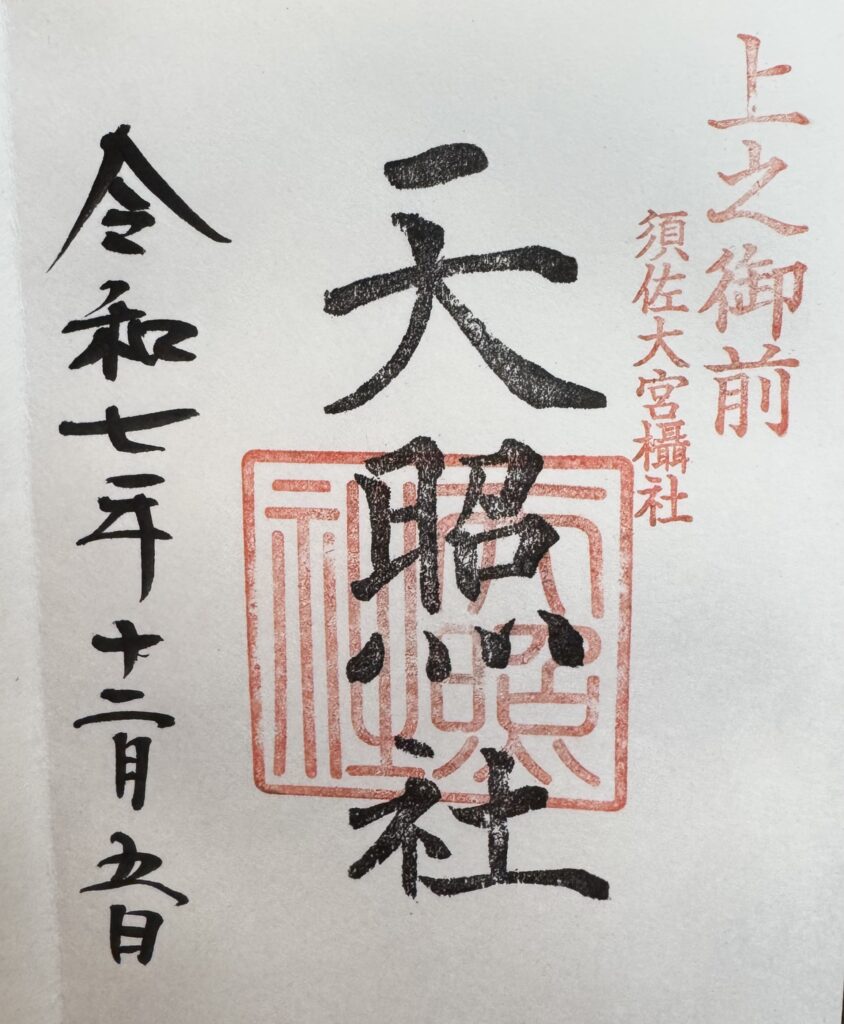 上之御前
須佐大宮櫺社
天照社
天照社
令和七年十二月五日